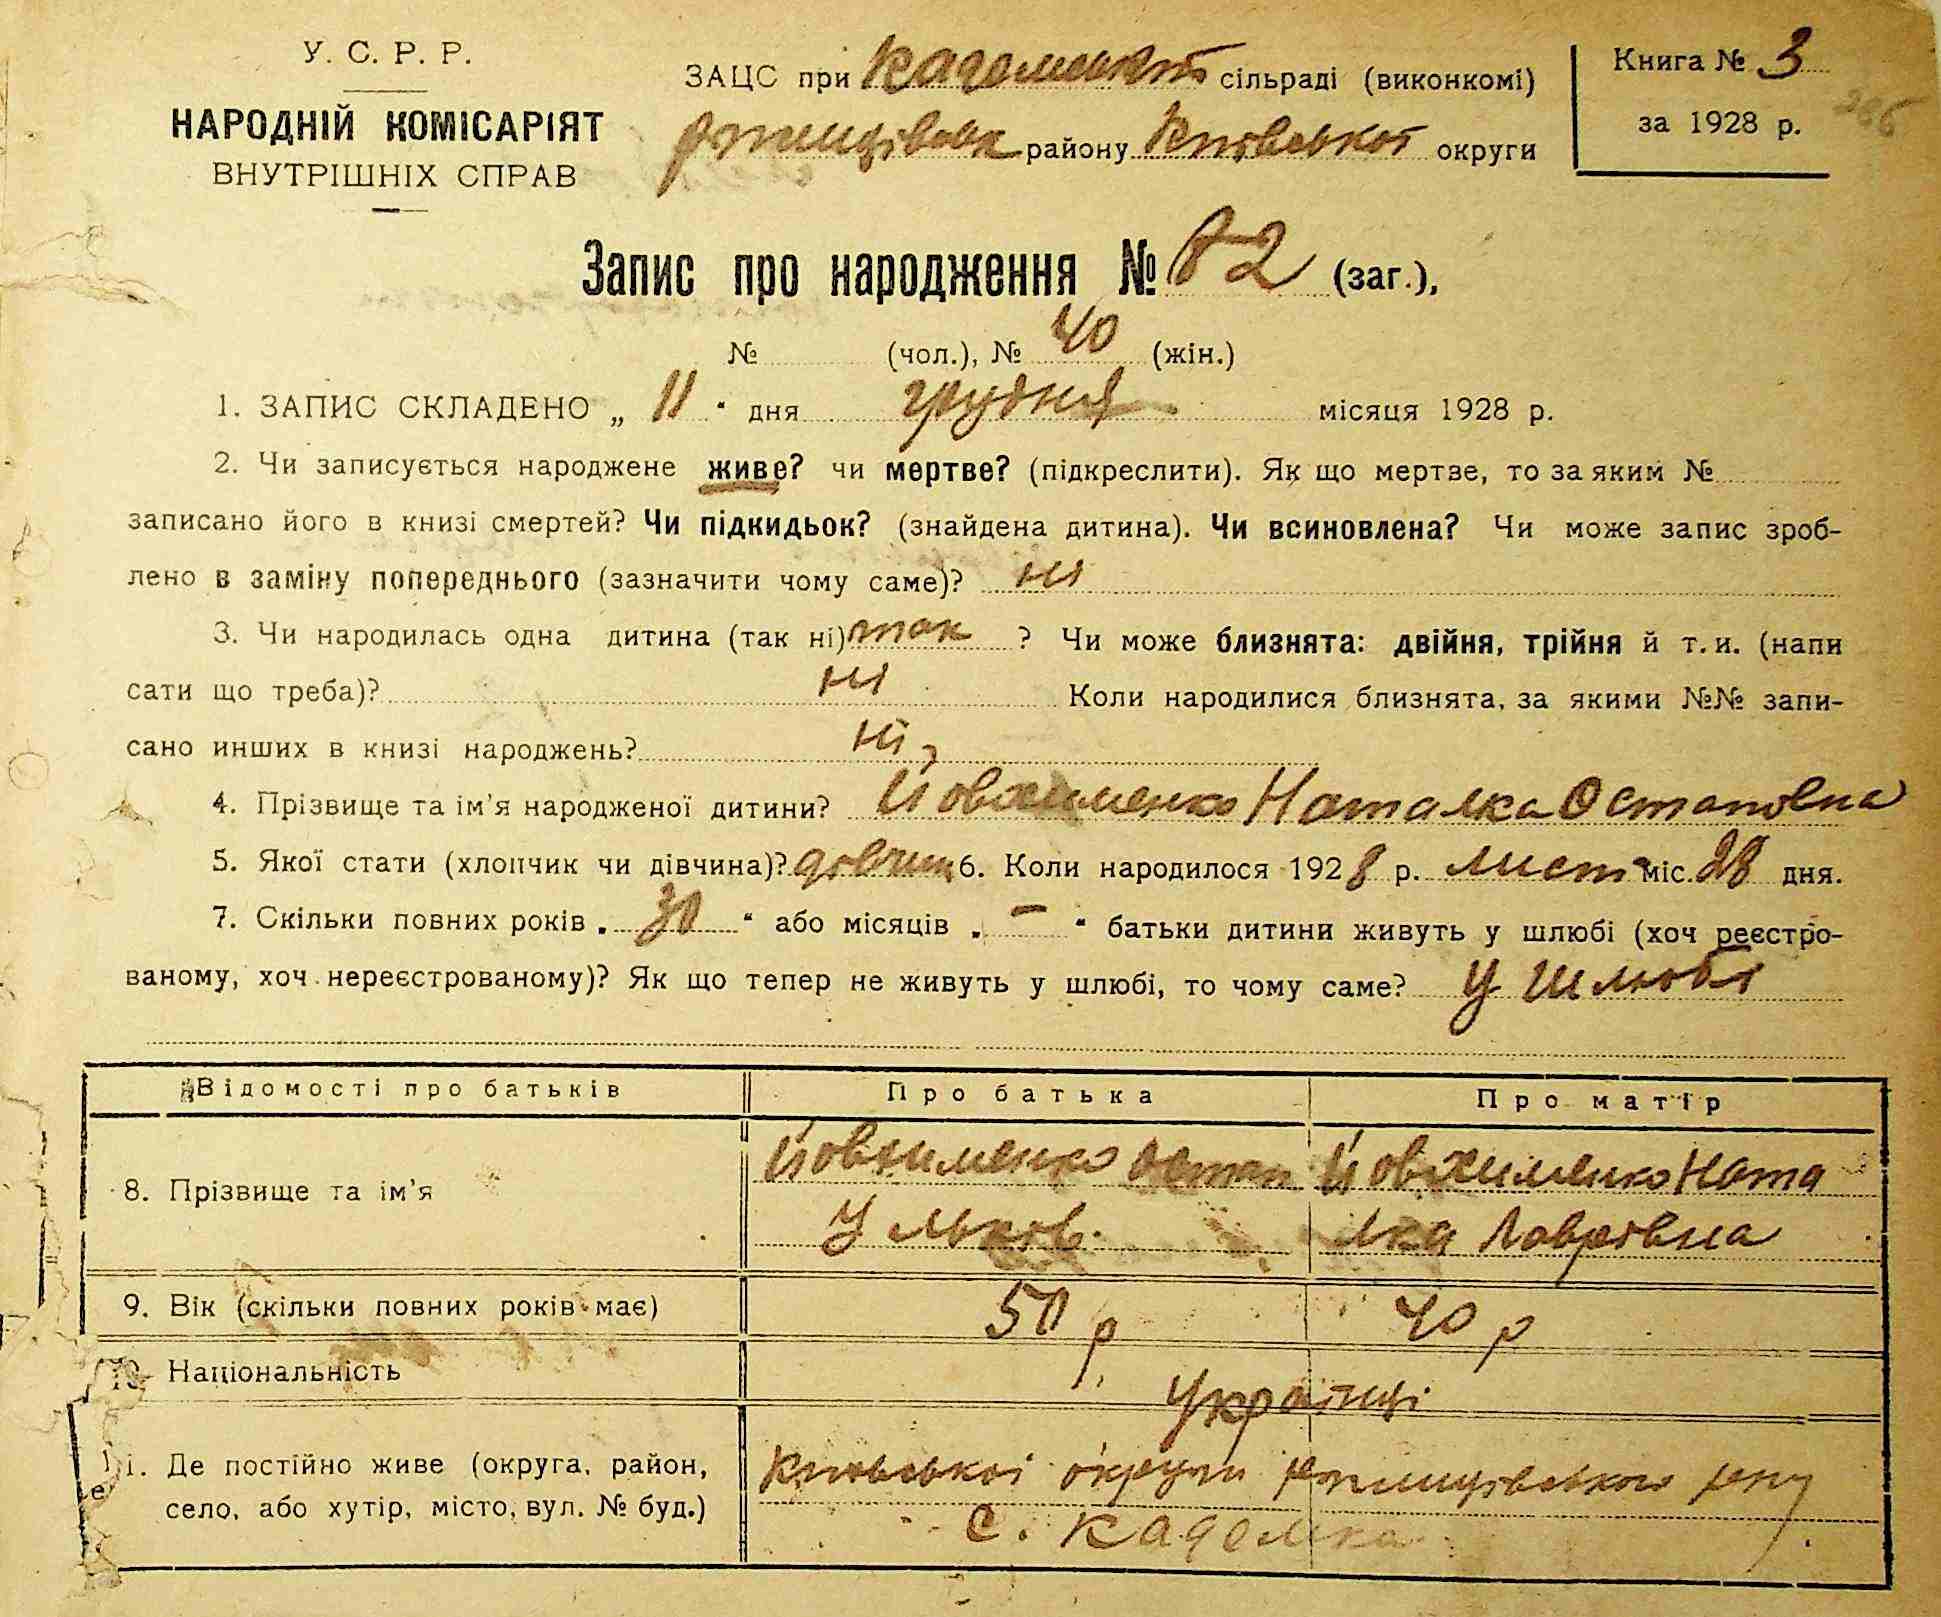 У. С. Р. Р.
НАРОДНІЙ КОМІСАРІЯТ
ВНУТРІШНІХ СПРАВ
ЗАЦС при Кадемській сільраді (виконкомі)
ржищівськ району Київської округи
Книга № 3
за 1928 р.
Запис про народження № 82 (заг.),
№ (чол.), № 40 (жін.)
1. ЗАПИС СКЛАДЕНО „ 11 “ дня грудня місяця 1928 р.
2. Чи записується народжене живе? чи мертве? (підкреслити). Як що мертве, то за яким №
записано його в книзі смертей? Чи підкидьок? (знайдена дитина). Чи всиновлена? Чи може запис зроб-
лено в заміну попереднього (зазначити чому саме)? ні
3. Чи народилась одна дитина (так ні) так ? Чи може близнята: двійня, трійня й т. и. (напи
сати що треба)? ні Коли народилися близнята, за якими №№ запи-
сано инших в книзі народжень? ні
4. Прізвище та ім'я народженої дитини? Йовхименко Наталка Остаповна
5. Якої стати (хлопчик чи дівчина)? дівчин 6. Коли народилося 1928 р. лист міс. 28 дня.
7. Скільки повних років „ 30 “ або місяців „ — “ батьки дитини живуть у шлюбі (хоч реєстро-
ваному, хоч нереєстрованому)? Як що тепер не живуть у шлюбі, то чому саме? У шлюбі
Відомості про батьків Про батька Про матір
8. Прізвище та ім'я Йовхименко Остап Йовхименко Ната
лка Лаврівна
9. Вік (скільки повних років має) 50 р 40 р
10. Національність Українці
11. Де постійно живе (округа, район, Київської округи ржищівського р-ну
село, або хутір, місто, вул. № буд.) с. Кадомка